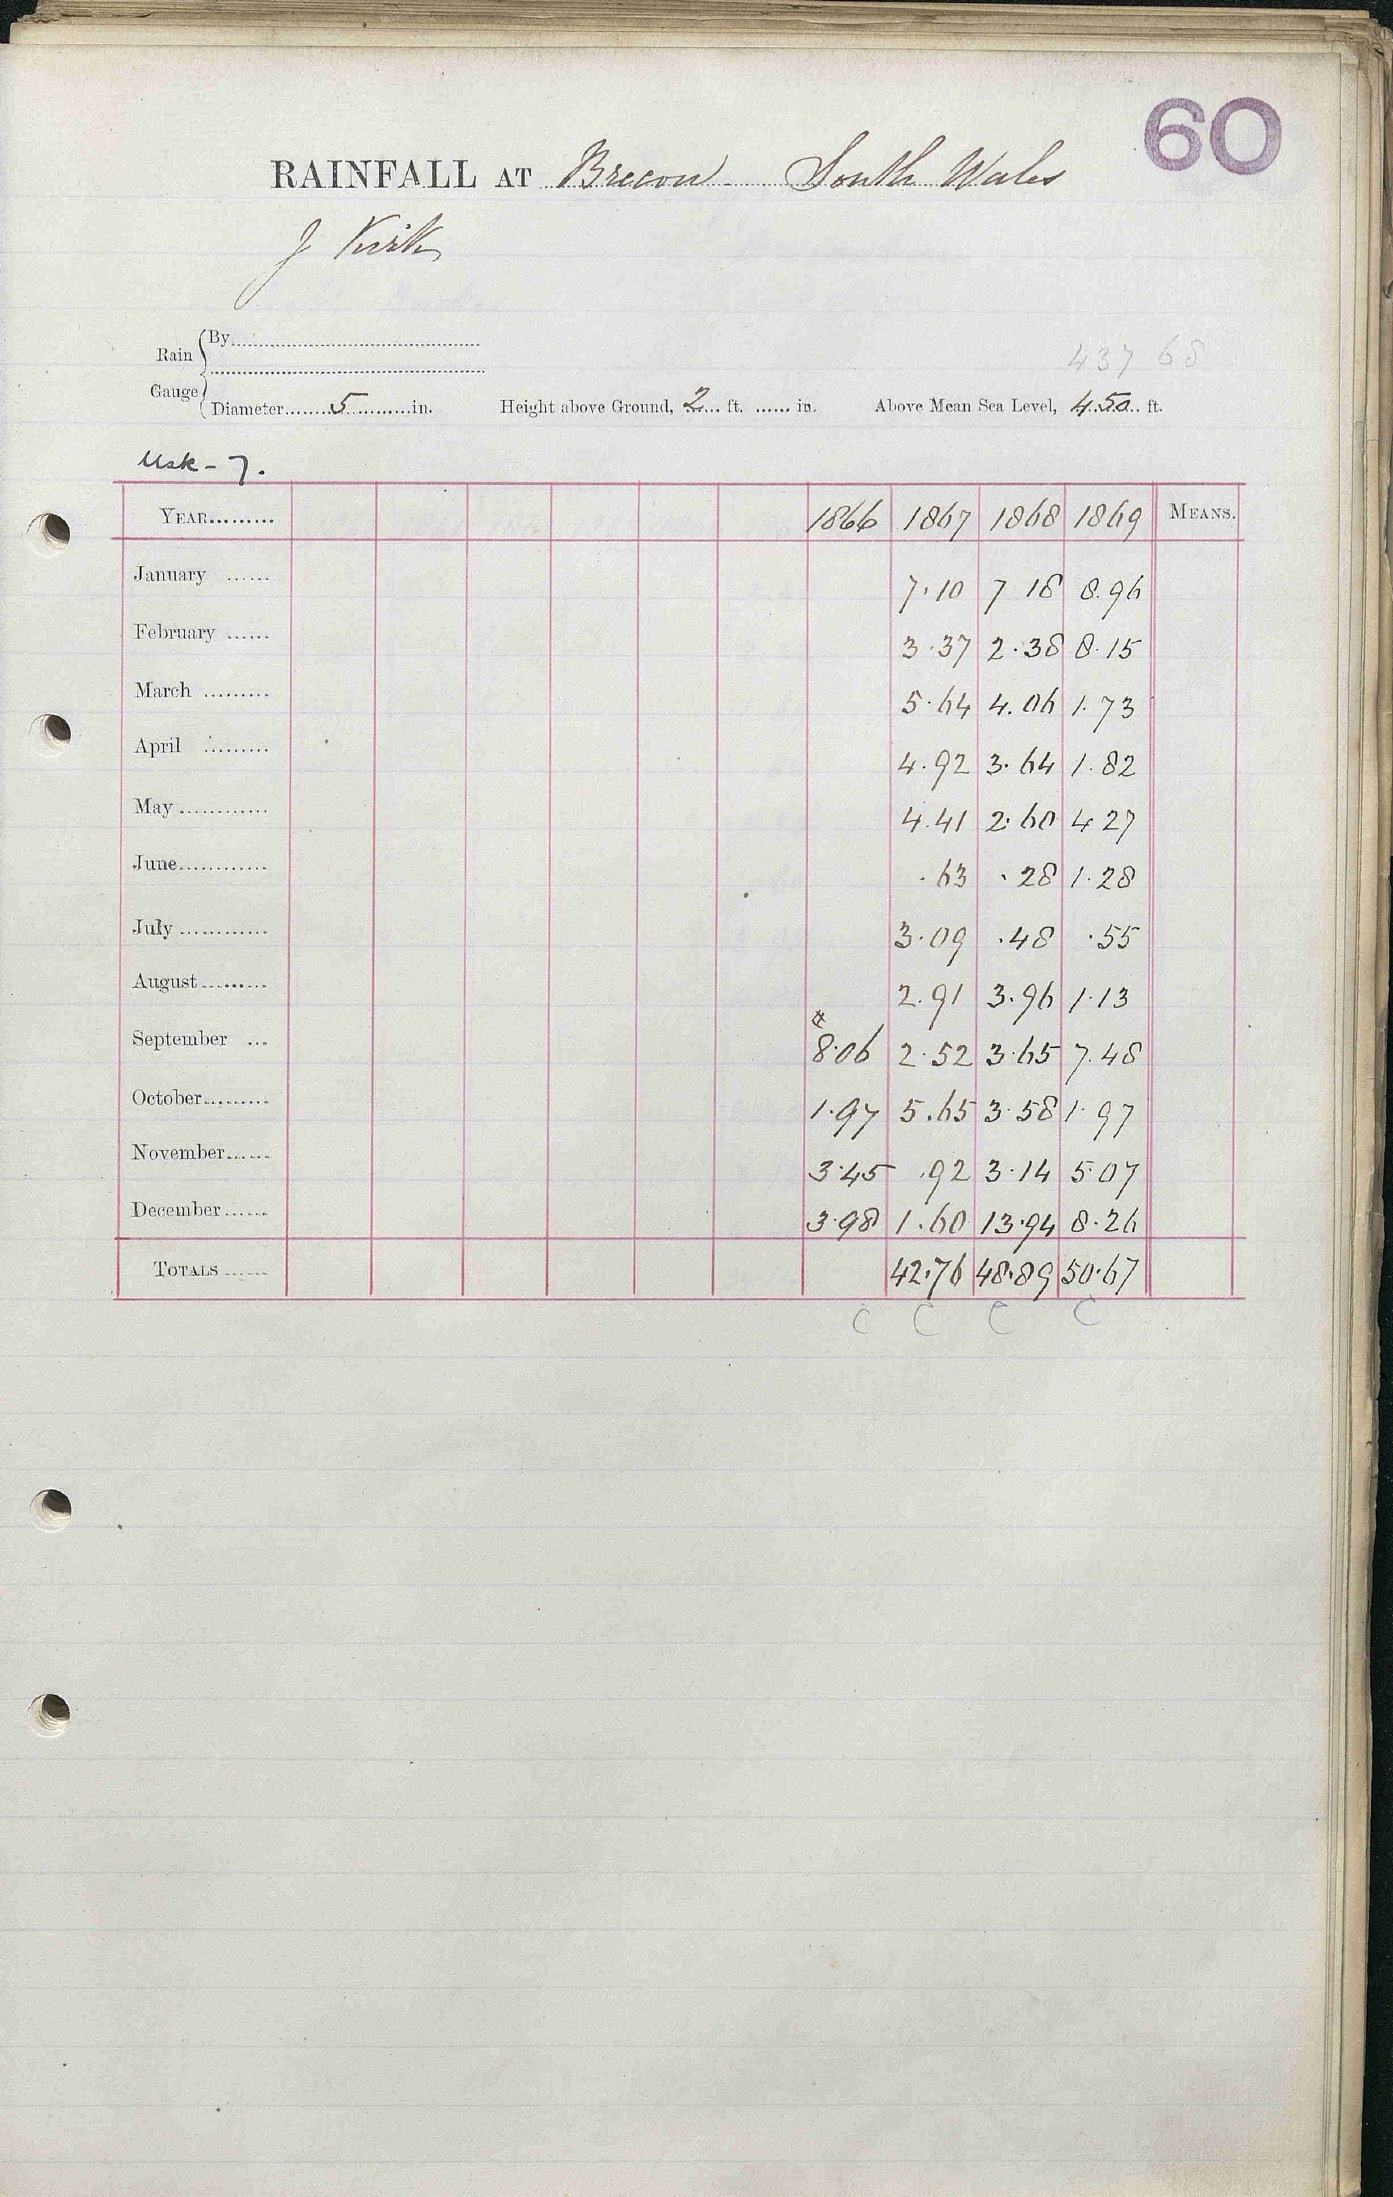 60
RAINFALL AT Brecon South Wales
J Kirk
437 68
Rain Gauge { By
Diameter 5 in. Height above Ground, 2 ft. in. Above Mean Sea Level, 450 ft.
Usk - 7.
YEAR 1866 1867 1868 1869 MEANS.
January 7.10 7 18 8.96
February 3.37 2.38 8.15
March 5.64 4.06 1.73
April 4.92 3.64 1.82
May 4.41 2.60 4.27
June .63 .28 1.28
July 3.09 .48 .55
August 2.91 3.96 1.13
September 8.06 2.52 3.65 7.48
October 1.97 5.65 3.58 1.97
November 3.45 .92 3.14 5.07
December 3.98 1.60 13.94 8.26
TOTALS 42.76 48.89 50.67
C C C C